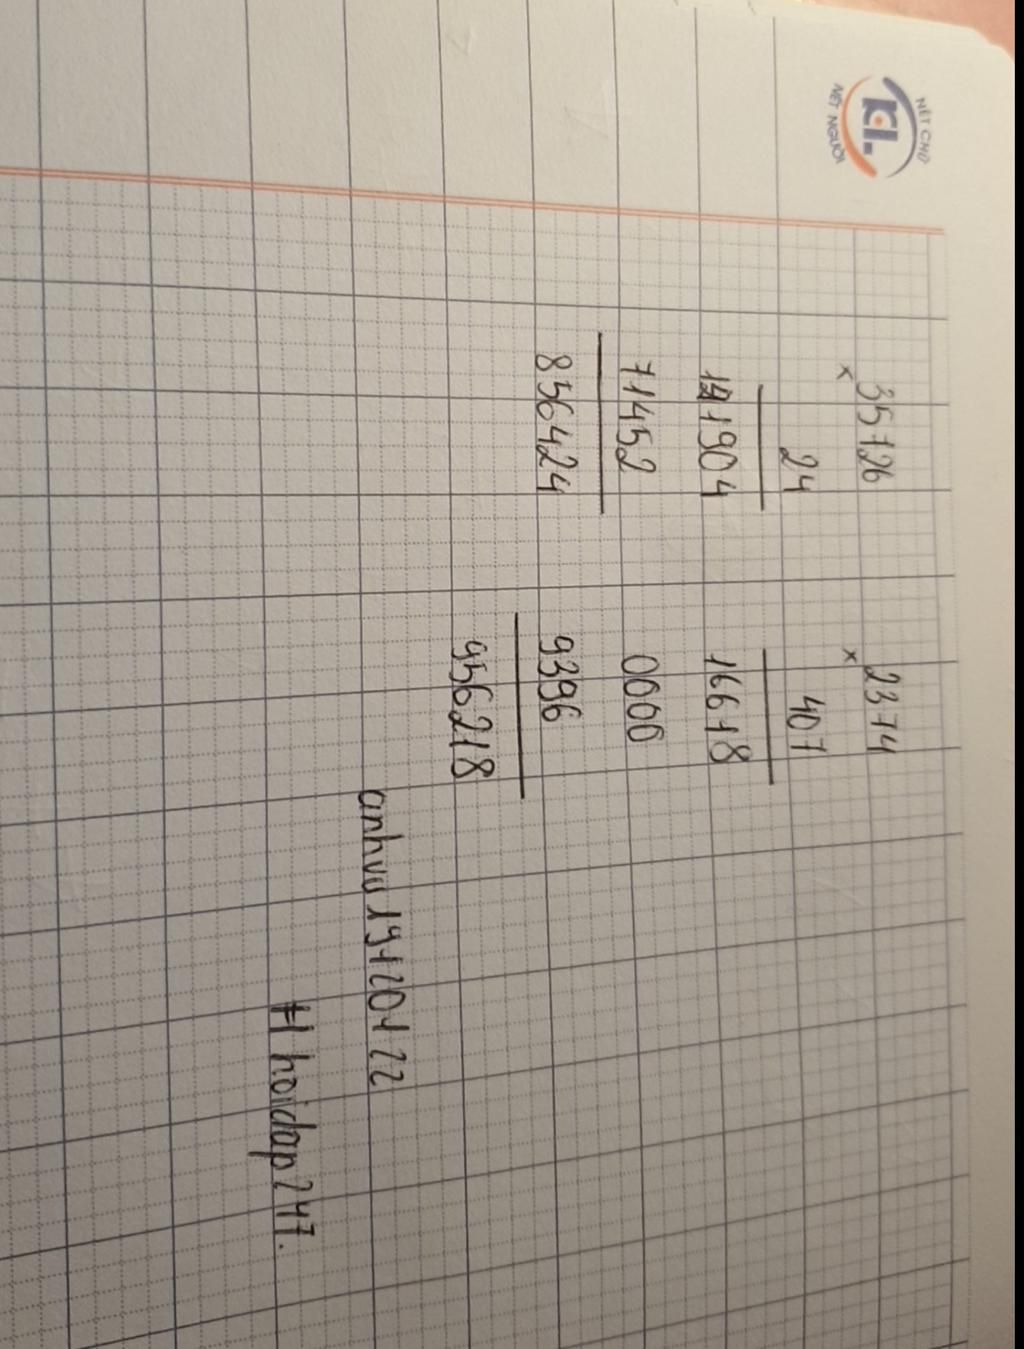 NÉT CHỮ
KL
NẾT NGƯỜI
35726
x
24
141904
71452
856424
2374
x
407
16618
0000
9396
956218
anhvu 19720722
# hoidap247.